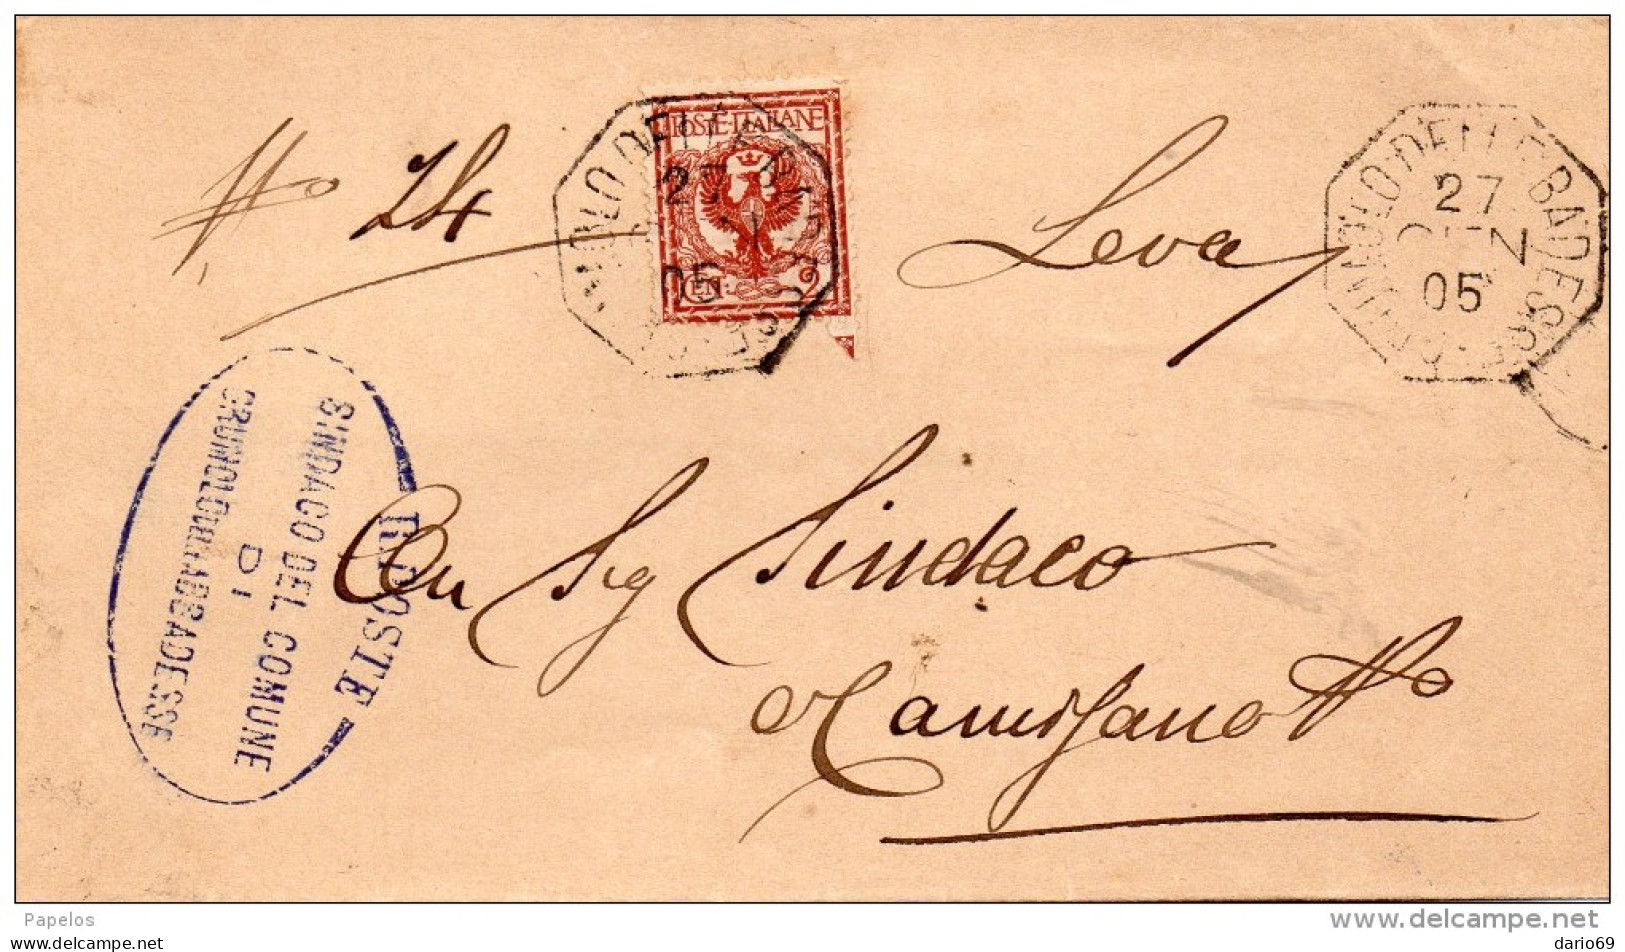 N° 24
Leva
POSTE·ITALIANE
CEN: 2
27
05
27
GEN
05
GRUMOLO DELLE BADESSE
R. POSTE
SINDACO DEL COMUNE
DI
GRUMOLO DELLE ABBADESSE
Al Sig Sindaco
Camisano Vo
Papelos
www.delcampe.net
dario69